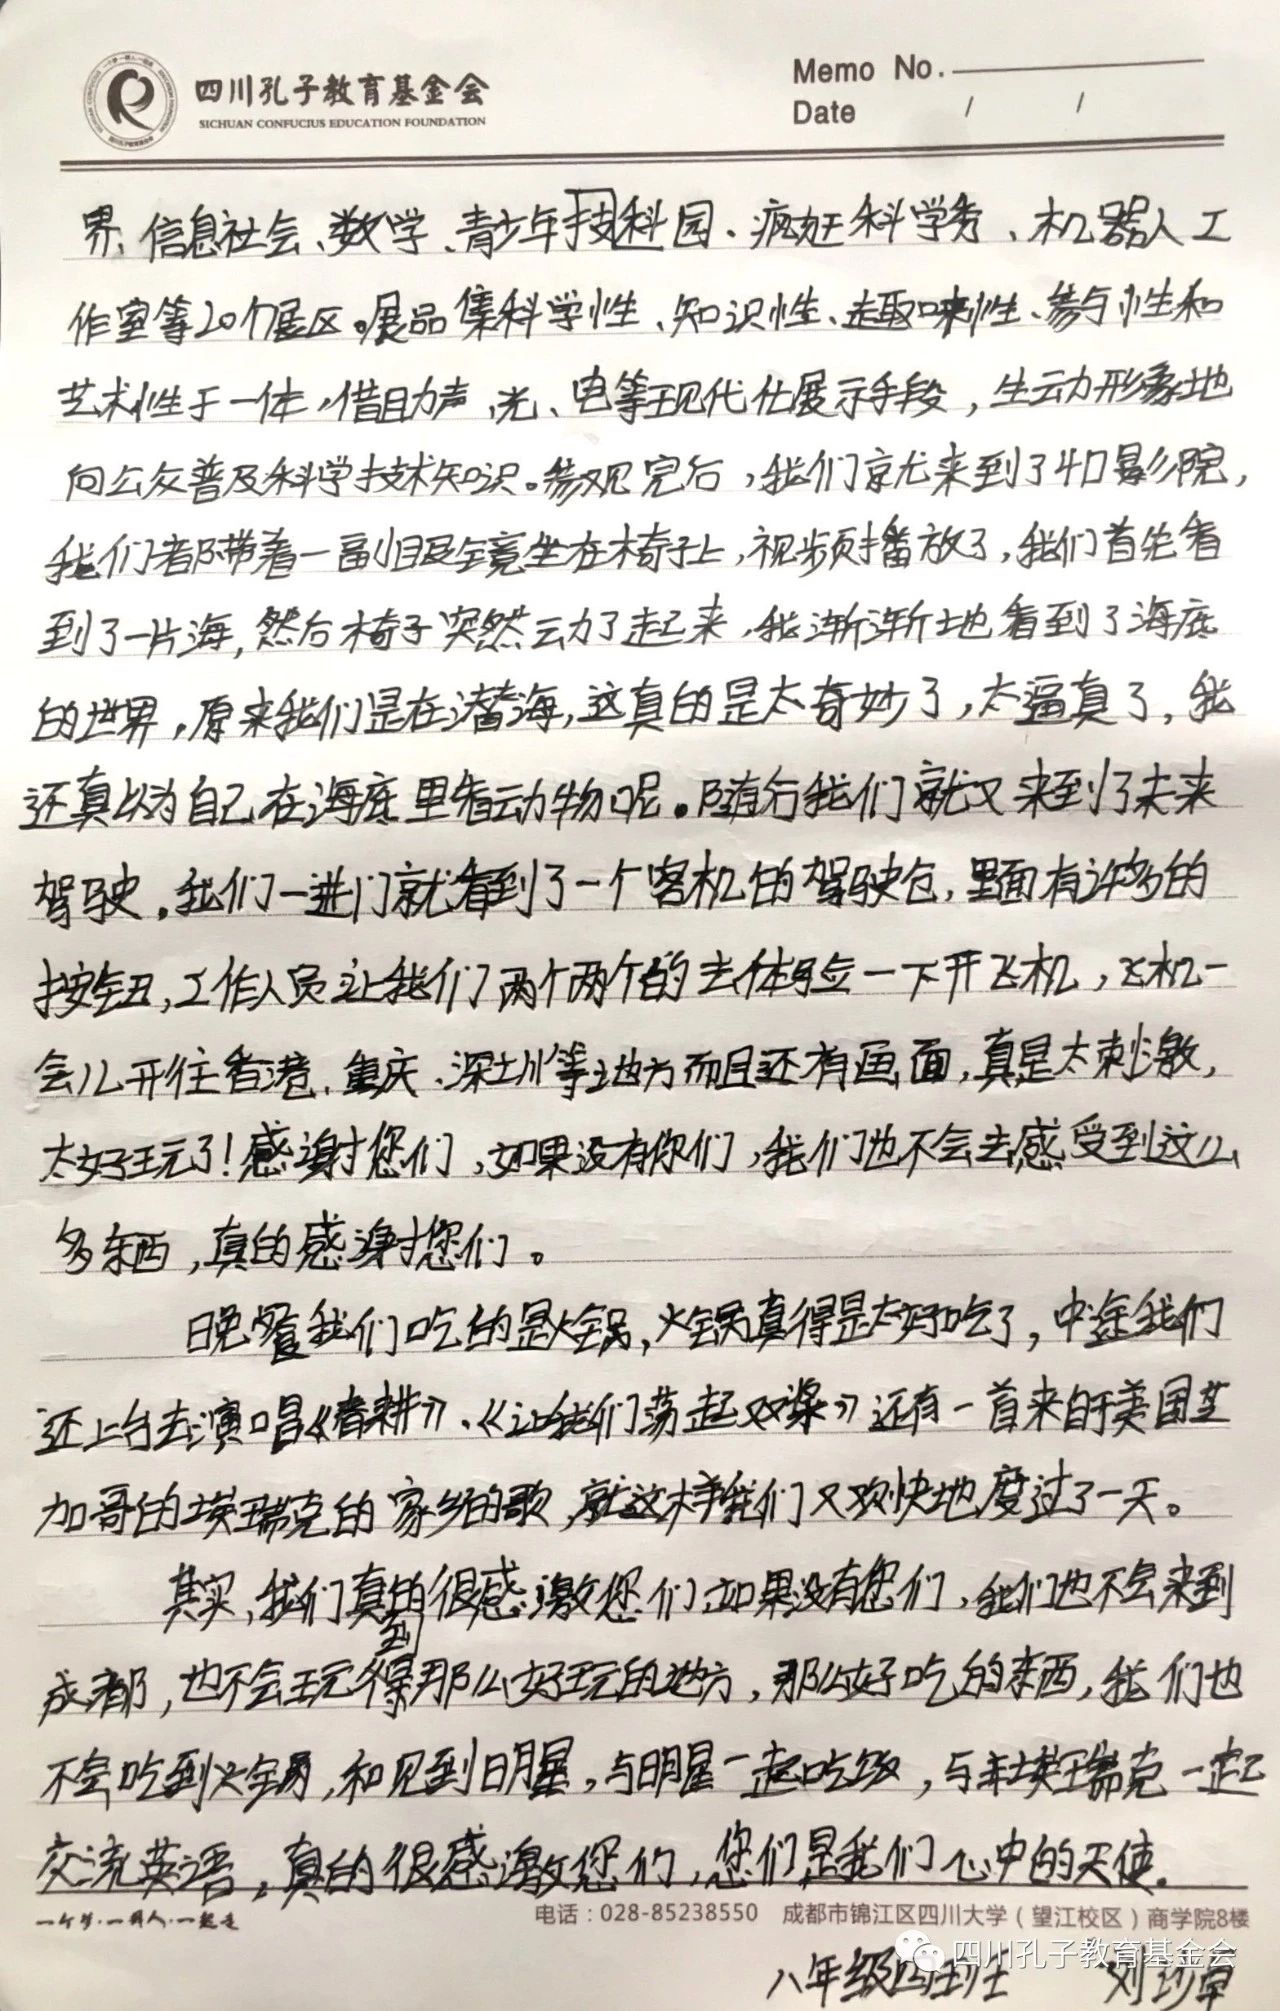 四川孔子教育基金会
SICHUAN CONFUCIUS EDUCATION FOUNDATION
Memo No.
Date / /
界、信息社会、数学、青少年技科园、疯狂科学秀、机器人工
作室等20个展区。展品集科学性、知识性、趣味性、参与性和
艺术性于一体，借助声、光、电等现代化展示手段，生动形象地
向公众普及科学技术知识。参观完后，我们就来到了4D影院，
我们都带着一副眼镜坐在椅子上，视频播放了，我们首先看
到了一片海，然后椅子突然动了起来，我渐渐地看到了海底
的世界，原来我们是在潜海，这真的是太奇妙了，太逼真了，我
还真以为自己在海底里看动物呢。随行我们就又来到了未来
驾驶。我们一进门就看到了一个客机的驾驶仓，里面有许多的
按钮，工作人员让我们两个两个的去体验一下开飞机，飞机一
会儿开往香港、重庆、深圳等地方而且还有画面，真是太刺激，
太好玩了！感谢您们，如果没有你们，我们也不会去感受到这么
多东西，真的感谢您们。
晚餐我们吃的是火锅，火锅真得是太好吃了，中途我们
还上台去演唱《春耕》、《让我们荡起双桨》还有一首来自于美国芝
加哥的埃瑞克的家乡的歌，就这样我们又欢快地度过了一天。
其实，我们真的很感激您们如果没有您们，我们也不会来到
成都，也不会玩得到那么好玩的地方，那么好吃的东西，我们也
不会吃到火锅，和见到明星，与明星一起吃饭，与埃瑞克一起
交流英语，真的很感激您们，您们是我们心中的天使。
一个梦·一群人·一起走
电话：028-85238550 成都市锦江区四川大学（望江校区）商学院8楼
四川孔子教育基金会
八年级四班 刘